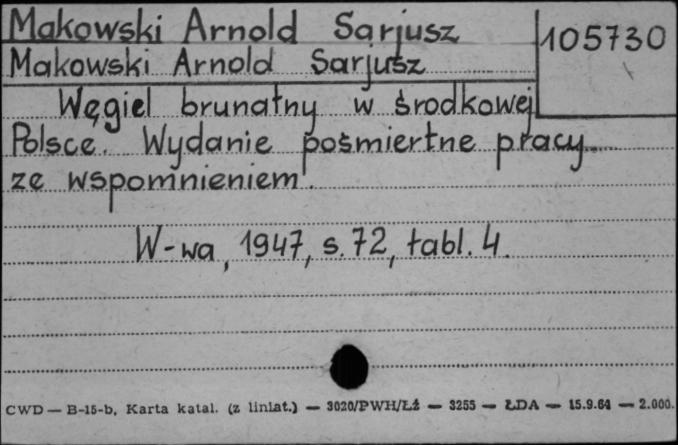 Makowski Arnold Sarjusz
105730
Makowski Arnold Sarjusz
Węgiel brunatny w środkowej
Polsce. Wydanie pośmiertne pracy
ze wspomnieniem.
W-wa, 1947, s. 72, tabl. 4.
CWD — B-15-b, Karta katal. (z liniat.) — 3020/PWH/Łż — 3255 — ŁDA — 15.9.64 — 2.000.